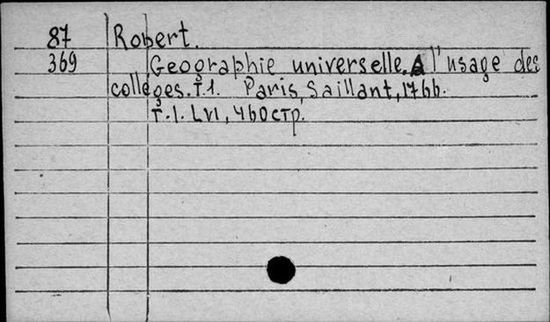 87 Robert.
369 Geographie universelle. A l'usage des
collèges. T.1. Paris, Saillant, 1766.
T.1. LVI, 460стр.